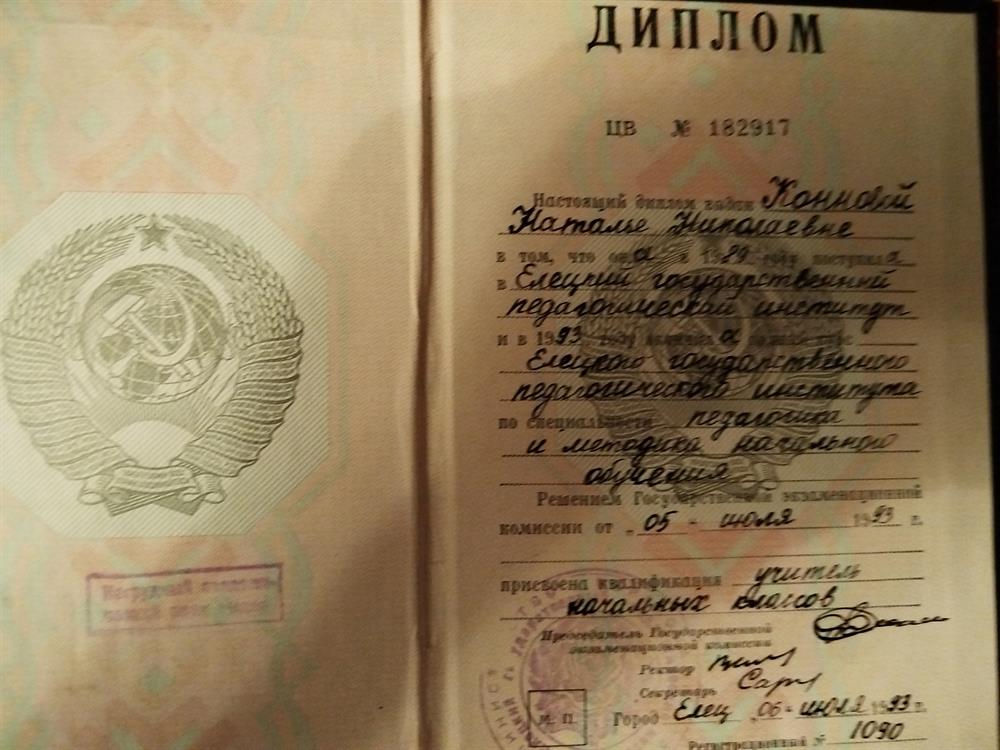 ДИПЛОМ
ЦВ № 182917
Настоящий диплом выдан Конновой
Наталье Николаевне
в том, что она в 1989 году поступила
в Елецкий государственный
педагогический институт
и в 1993 году окончила полный курс
Елецкого государственного
педагогического института
по специальности педагогика
и методика начального
обучения
Решением Государственной экзаменационной
комиссии от „05“ июля 1993 г.
присвоена квалификация учитель
начальных классов
Председатель Государственной
экзаменационной комиссии
Ректор
Секретарь
М. П.
Город Елец „06“ июля 1993 г.
Регистрационный № 1090
Нагрудный